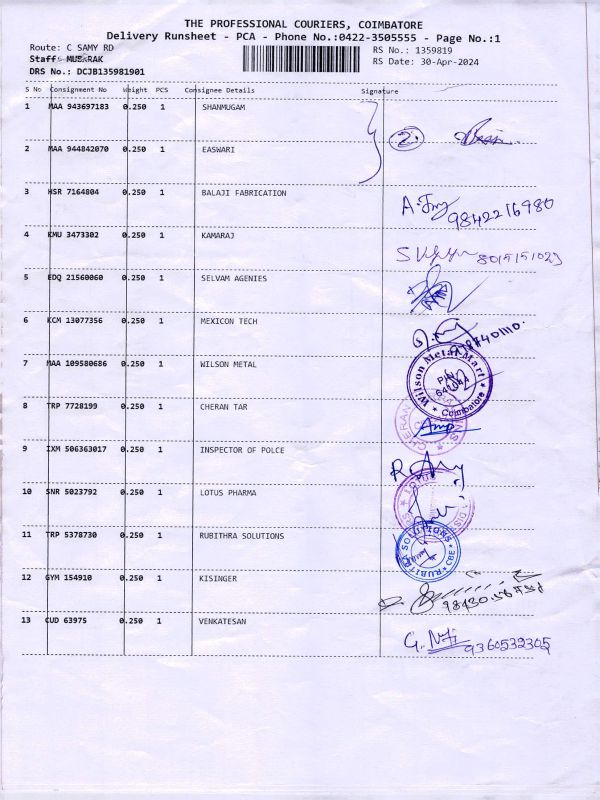 THE PROFESSIONAL COURIERS, COIMBATORE
Delivery Runsheet - PCA - Phone No.:0422-3505555 - Page No.:1
Route: C SAMY RD RS No.: 1359819
Staff: MUBARAK RS Date: 30-Apr-2024
DRS No.: DCJB135981901
S No Consignment No Weight PCS Consignee Details Signature
1 MAA 943697183 0.250 1 SHANMUGAM
2
2 MAA 944842070 0.250 1 EASWARI
3 HSR 7164804 0.250 1 BALAJI FABRICATION
9842216980
4 KMU 3473302 0.250 1 KAMARAJ
8015151029
5 EDQ 21560060 0.250 1 SELVAM AGENIES
6 KCM 13077356 0.250 1 MEXICON TECH
7 MAA 109580686 0.250 1 WILSON METAL
Wilson Metal Mart
PIN
Coimbatore
8 TRP 7728199 0.250 1 CHERAN TAR
CHERAN
9 IXM 506363017 0.250 1 INSPECTOR OF POLCE
10 SNR 5023792 0.250 1 LOTUS PHARMA
LOTUS
11 TRP 5378730 0.250 1 RUBITHRA SOLUTIONS
SOLUTIONS
CBE
12 GYM 154910 0.250 1 KISINGER
13 CUD 63975 0.250 1 VENKATESAN
9360532305